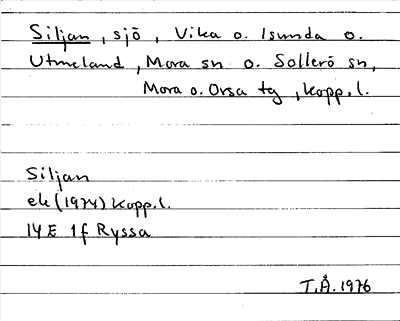 Siljan, sjö, Vika o. Isunda o.
Utmeland, Mora sn o. Sollerö sn,
Mora o. Orsa tg, Kopp. l.
Siljan
ek (1974) Kopp. l.
14E 1f Ryssa
T.Å. 1976